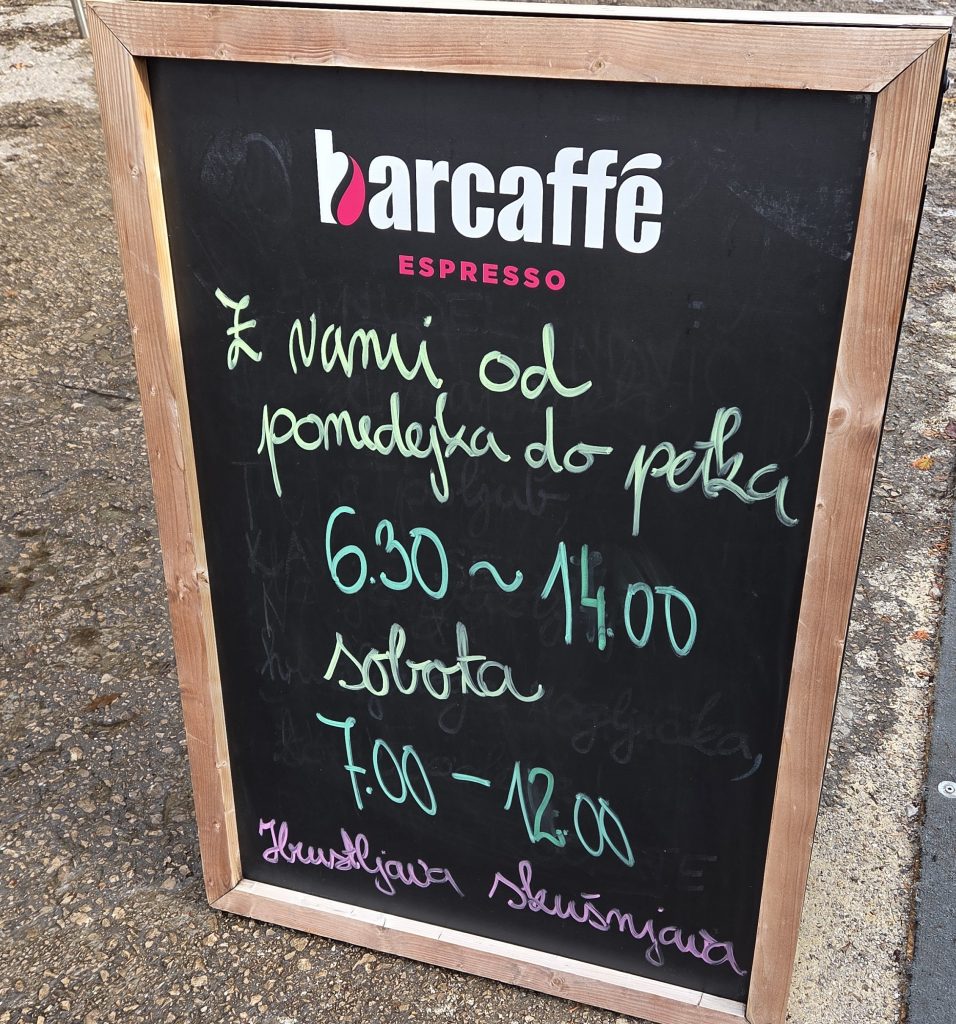 barcaffé
ESPRESSO
Z vami od
ponedejka do petka
6.30 ~ 14.00
sobota
7.00 - 12.00
Hrustljava skušnjava